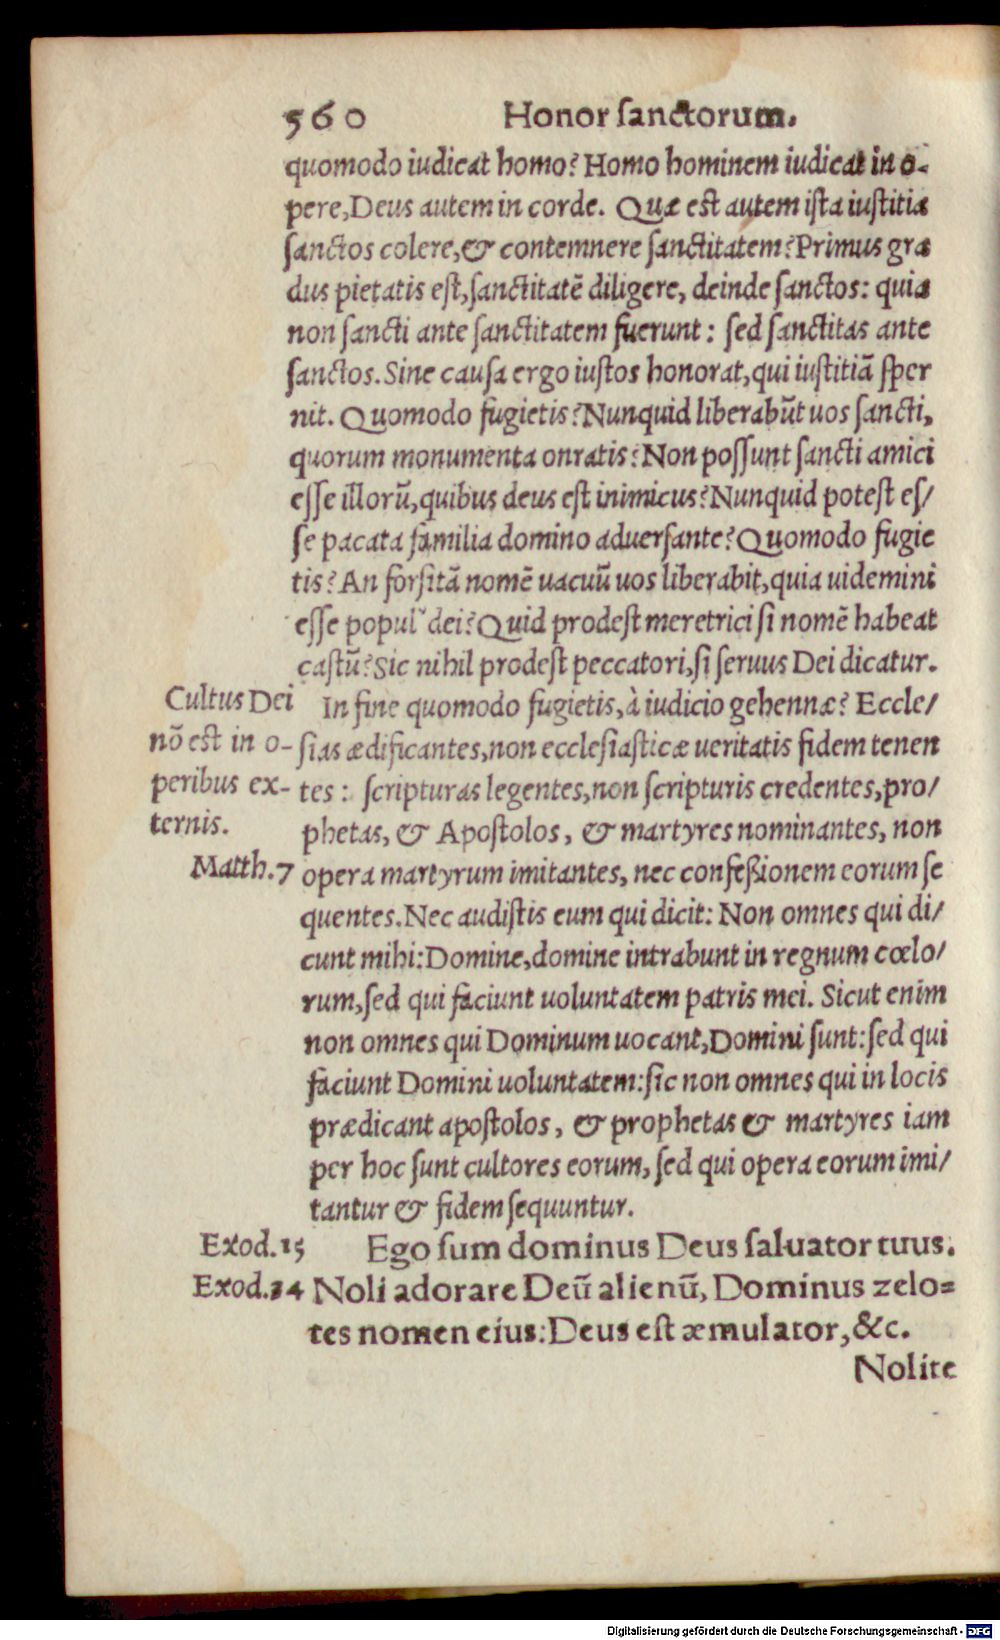 560 Honor sanctorum.
quomodo iudicat homo? Homo hominem iudicat in o-
pere, Deus autem in corde. Quæ est autem ista iustitia
sanctos colere, & contemnere sanctitatem? Primus gra
dus pietatis est, sanctitatē diligere, deinde sanctos: quia
non sancti ante sanctitatem fuerunt: sed sanctitas ante
sanctos. Sine causa ergo iustos honorat, qui iustitiā sper
nit. Quomodo fugietis? Nunquid liberabūt uos sancti,
quorum monumenta onratis? Non possunt sancti amici
esse illorū, quibus deus est inimicus? Nunquid potest es/
se pacata familia domino aduersante? Quomodo fugie
tis? An forsitā nomē uacuū uos liberabit, quia uidemini
esse popul⁹ dei? Quid prodest meretrici si nomē habeat
castū? Sic nihil prodest peccatori, si seruus Dei dicatur.
Cultus Dei
nō est in o-
peribus ex-
ternis.
Matth. 7
In fine quomodo fugietis, à iudicio gehennæ? Eccle/
sias ædificantes, non ecclesiasticæ ueritatis fidem tenen
tes: scripturas legentes, non scripturis credentes, pro/
phetas, & Apostolos, & martyres nominantes, non
opera martyrum imitantes, nec confeßionem eorum se
quentes. Nec audistis eum qui dicit: Non omnes qui di/
cunt mihi: Domine, domine intrabunt in regnum cœlo/
rum, sed qui faciunt uoluntatem patris mei. Sicut enim
non omnes qui Dominum uocant, Domini sunt: sed qui
faciunt Domini uoluntatem: sic non omnes qui in locis
prædicant apostolos, & prophetas & martyres iam
per hoc sunt cultores eorum, sed qui opera eorum imi/
tantur & fidem sequuntur.
Exod. 15 Ego sum dominus Deus saluator tuus.
Exod. 34 Noli adorare Deū alienū, Dominus zelo=
tes nomen eius: Deus est æmulator, &c.
Nolite
Digitalisierung gefördert durch die Deutsche Forschungsgemeinschaft - DFG